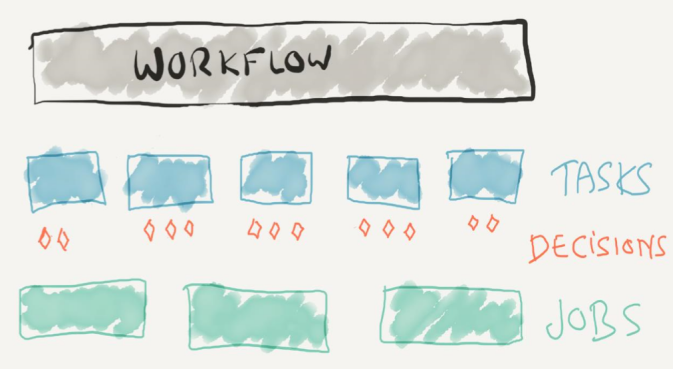 WORKFLOW
TASKS
DECISIONS
JOBS